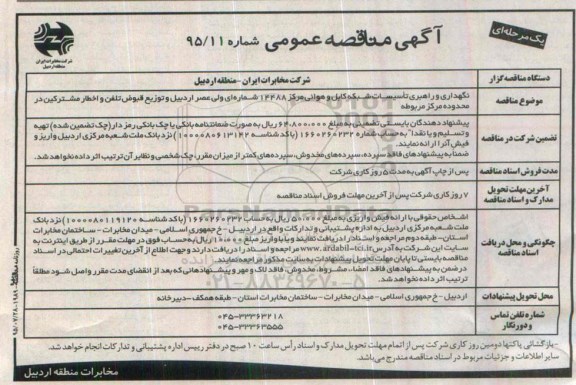 یک مرحله‌ای
آگهی مناقصه عمومی شماره ۹۵/۱۱
شرکت مخابرات ایران
منطقه اردبیل
دستگاه مناقصه گزار
شرکت مخابرات ایران - منطقه اردبیل
موضوع مناقصه
نگهداری و راهبری تأسیسات شبکه کابل و هوائی مرکز ۱۴۴۸۸ شماره‌ای ولی عصر اردبیل و توزیع قبوض تلفن و اخطار مشترکین در
محدوده مرکز مربوطه
تضمین شرکت در مناقصه
پیشنهاد دهندگان بایستی تضمینی به مبلغ ۶۴۰،۸۰۰،۰۰۰ ریال به صورت ضمانتنامه بانکی یا چک بانکی رمزدار (چک تضمین شده) تهیه
و تسلیم و یا نقداً به حساب شماره ۱۶۶۰۲۶۰۲۳۲ (با کد شناسه ۱۰۰۰۰۸۰۶۱۳۱۴۲) نزد بانک ملت شعبه مرکزی اردبیل واریز و
فیش آنرا ارائه نمایند.
ضمناً به پیشنهادهای فاقد سپرده، سپرده‌های مخدوش، سپرده‌های کمتر از میزان مقرر، چک شخصی و نظایر آن ترتیب اثر داده نخواهد شد.
مدت فروش اسناد مناقصه
پس از چاپ آگهی به مدت ۵ روز کاری شرکت
آخرین مهلت تحویل
مدارک و اسناد مناقصه
۷ روز کاری شرکت پس از آخرین مهلت فروش اسناد مناقصه
چگونگی و محل دریافت
اسناد مناقصه
اشخاص حقوقی با ارائه فیش واریزی به مبلغ ۵۰۰،۰۰۰ ریال به حساب ۱۶۶۰۲۶۰۲۳۲ (با کد شناسه ۱۰۰۰۰۸۰۱۱۹۱۲۰) نزد بانک
ملت شعبه مرکزی اردبیل به اداره پشتیبانی و تدارکات واقع در اردبیل - خ جمهوری اسلامی - میدان مخابرات - ساختمان مخابرات
استان - طبقه دوم مراجعه و اسناد را دریافت نمایند و یا با واریز مبلغ ریال به حساب فوق در مهلت مقرر از طریق اینترنت به
سایت این شرکت به آدرس www.ardabil-tci.ir مراجعه و اسناد را دریافت دارند و جهت اطلاع از آخرین تغییرات احتمالی در اسناد
مناقصه بایستی تا پایان مهلت تحویل پیشنهادات به سایت مذکور مراجعه نمایند.
در ضمن به پیشنهادهای فاقد امضاء، مشروط، مخدوش، فاقد لاک و مهر و پیشنهادهائی که بعد از انقضای مدت مقرر واصل شود مطلقاً
ترتیب اثر داده نخواهد شد.
محل تحویل پیشنهادات
اردبیل - خ جمهوری اسلامی - میدان مخابرات - ساختمان مخابرات استان - طبقه همکف - دبیرخانه
شماره تلفن تماس
و دورنگار
۰۴۵-۳۳۳۶۳۲۱۸
۰۴۵-۳۳۳۶۳۵۵۵
- بازگشائی پاکتها دومین روز کاری شرکت پس از اتمام مهلت تحویل مدارک و اسناد رأس ساعت ۱۰ صبح در دفتر رییس اداره پشتیبانی و تدارکات انجام خواهد شد.
سایر اطلاعات و جزئیات مربوط در اسناد مناقصه مندرج می‌باشد.
مخابرات منطقه اردبیل
۰۲۱-۸۸۳۴۹۶۷۰-۵